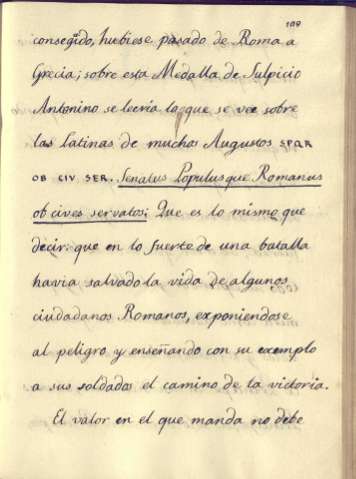 109
conseguido, hubiese pasado de Roma a
Grecia; sobre esta Medalla de Sulpicio
Antonino se leería lo que se vee sobre
las Latinas de muchos Augustos SPQR
OB CIV SER. Senatus Populusque Romanus
ob cives servatos: Que es lo mismo que
decir: que en lo fuerte de una batalla
havia salvado la vida de algunos
ciudadanos Romanos, exponiendose
al peligro y enseñando con su exemplo
a sus soldados el camino de la victoria.
El valor en el que manda no debe